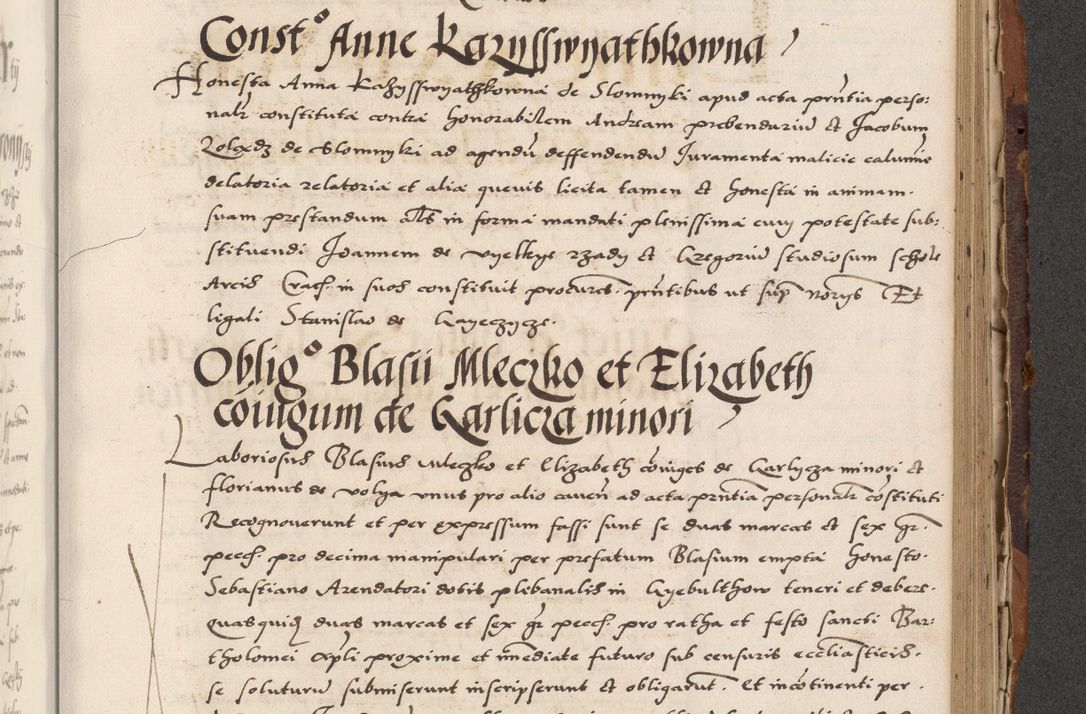 Constº Anne Kazyssiwyathkowna
Honesta Anna Kazyssiwyathkowna de Slomnyki apud acta prntia perso:
nalr constituta contra honorabilem Andream prebendariu et Jacobum
Zolędz de Slomnyki ad agendu deffendendu Juramenta malicie calumie
delatoria relatoria et alia quevis licita tamen et honesta in animam
suam prestandum als in forma mandati plenissima cum potestate sub:
stituendi Joannem de vyelkye rzady et Gregoriu studiosum schole
Arcis Crac. in suos constituit procures. prntibus ut sup norys Et
ligali Stanislao de
Obligº Blasii Mleczko et Elizabeth
coniugum de Garlicza minori
Laboriosus Blasius Mleczko et Elizabeth coniuges de Garlycza minori et
florianus de volya unus pro alio caven ad acta prntia personalr costituti
Recognoverunt et per expressum fassi sunt se duas marcas et sex gr.
pecch. pro decima manipulari per prefatum Blasium empta honesto
Sebastiano Arendatori dotis plebanalis in Gyebulthow teneri et debere
quasquid duas marcas et sex gr pecch. pro ratha et festo sancti Bar:
tholomei Apli proxime et imediate futuro sub censuris ecclesiasticis
se soluturu submiserunt inscripserunt et obligarut. Et incotinenti per